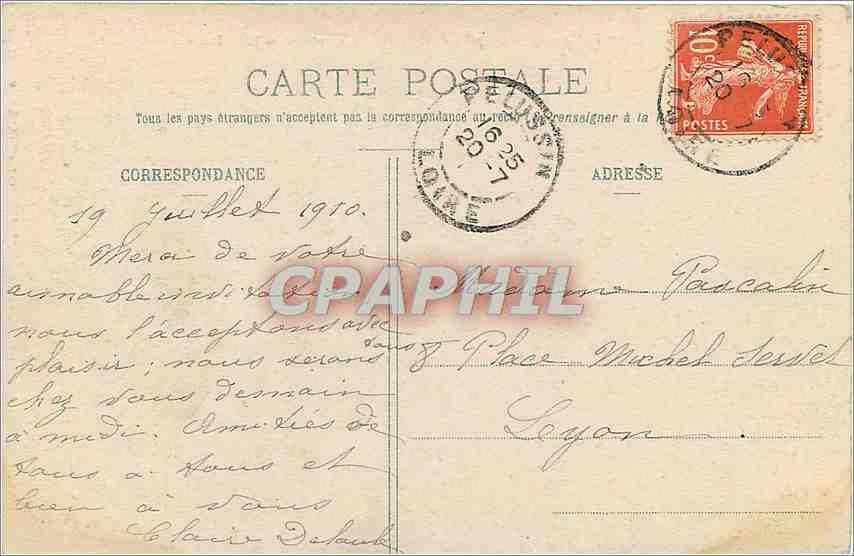 CARTE POSTALE
Tous les pays étrangers n'acceptent pas la correspondance au recto renseigner à la
CORRESPONDANCE
19 Juillet 1910.
Merci de votre
aimable invitation
nous l'acceptons avec
plaisir; nous serons tous
chez vous demain
à midi. Amitiés de
tous a tous et
bien à vous
Claire
PELUSSIN
16 25
20 -7
LOIRE
REPUBLIQUE FRANÇAISE
10 c
POSTES
PELUSSIN
16
20 -7
LOIRE
ADRESSE
Madame Pascalin
8 Place Michel Servet
Lyon.
CPAPHIL